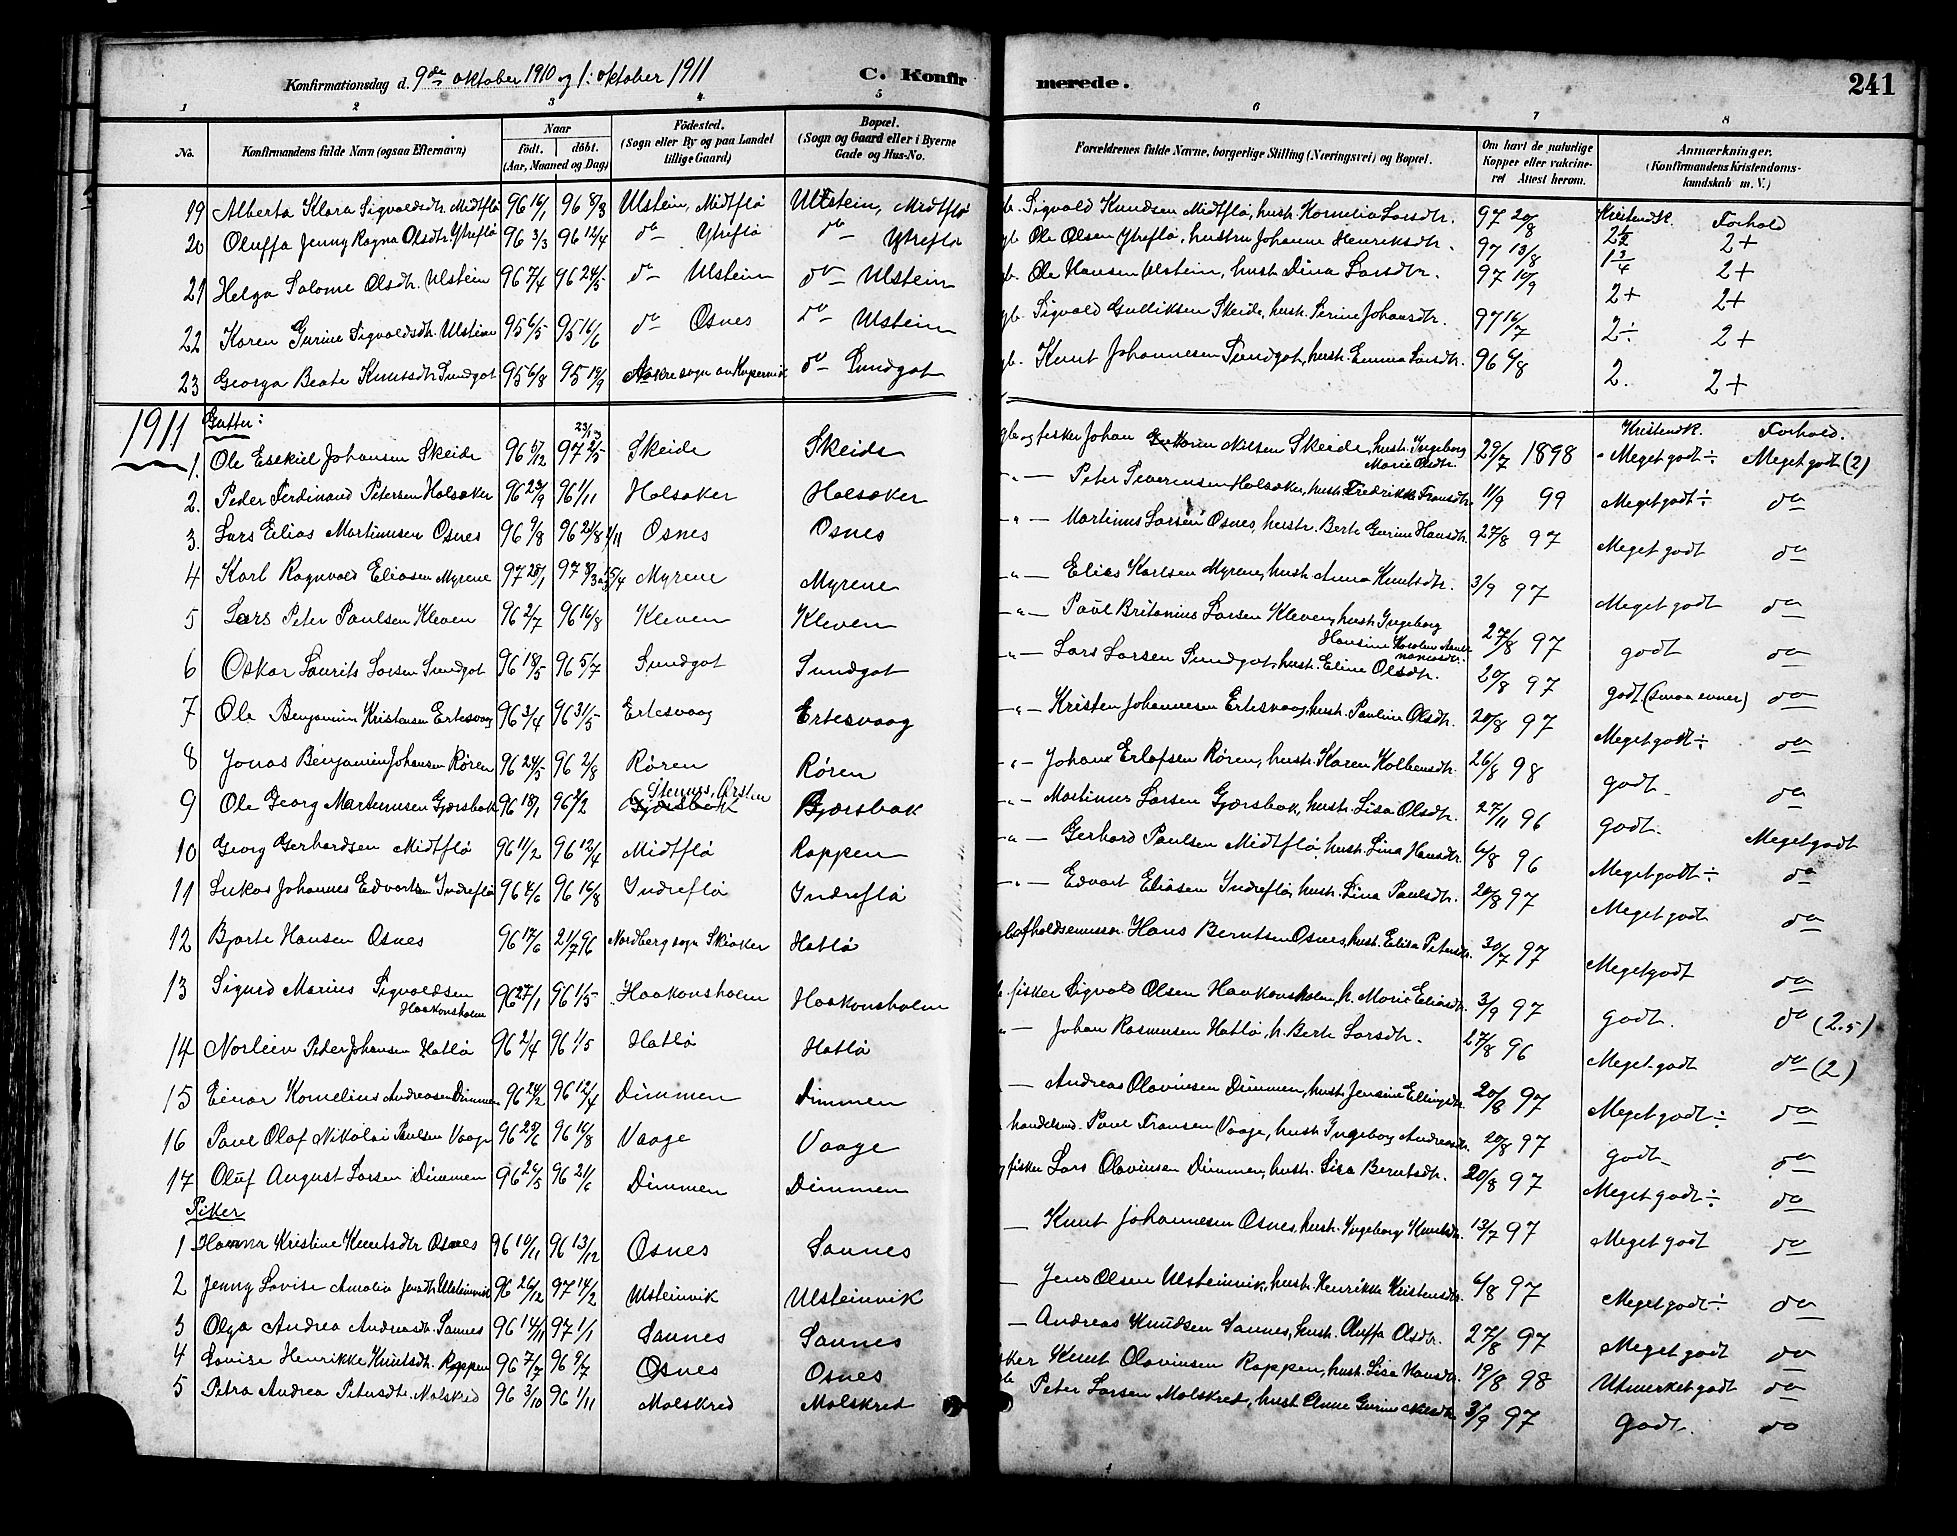 Konfirmationsdag d. 9de oktober 1910 og 1. oktober 1911 C. Konfirmerede. 241
1 2 3 4 5 6 7 8
No. Konfirmandens fulde Navn (ogsaa Efternavn) Naar født. døbt. (Aar, Maaned og Dag) Fødested. (Sogn eller By og paa Landet tillige Gaard) Bopæl. (Sogn og Gaard eller i Byerne Gade og Hus-No. Forældrenes fulde Navne, borgerlige Stilling (Næringsvei) og Bopæl. Om havt de naturlige Kopper eller vakcineret Attest herom. Anmærkninger. (Konfirmandens Kristendomskundskab m. V.)
Kristendk. Forhold
19 Alberta Klara Sigvaldsdtr. Midtflø 96 16/1 96 8/3 Ulstein, Midtflø Ulstein, Midtflø gb. Sigvald Knudsen Midtflø, hustr. Kornelia Larsdtr. 97 20/8 2½ 2+
20 Oluffa Jenny Ragna Olsdtr. Ytreflø 96 3/3 96 12/4 do Ytreflø do Ytreflø gb. Ole Olsen Ytreflø, hustru Johanne Henriksdtr. 97 13/8 1¾ 2+
21 Helga Salome Olsdtr. Ulstein 96 7/4 96 24/5 do Ulstein do Ulstein gb. Ole Hansen Ulstein, hustr. Dina Larsdtr. 97 10/9 2+ 2+
22 Karen Gurine Sigvaldsdtr. Ulstein 95 6/5 95 16/6 do Osnes do Ulstein gb. Sigvald Gulliksen Skeide, hustr. Serine Johansdtr. 97 16/7 2÷ 2+
23 Georga Beate Knutsdtr. Sundgot 95 6/8 95 19/9 do Sundgot gb. Knut Johannesen Sundgot, hustr. Emma Larsdtr. 96 6/8 2. 2+
1911 Gutter: Kristendk. Forhold.
1. Ole Esekiel Johansen Skeide 97 2/5 Skeide Skeide gb. og fisker Johan Nilsen Skeide, hustr. Ingeborg Marie Olsdtr. 29/7 1898 Meget godt÷ Meget godt (2)
2. Peder Ferdinand Petersen Holsøker 96 23/9 96 1/11 Holsøker Holsæker -"- Peter Severinsen Holsæker, hustr. Fredrikke Fransdtr. 11/9 99 Meget godt÷ do
3. Lars Elias Martinusen Osnes 96 9/8 96 Osnes Osnes -"- Martinus Larsen Osnes, hustr. Berte Gurine Hansdtr. 27/8 97 Meget godt do
4 Karl Ragnvald Eliasen Myrene 97 28/1 97 Myrene Myrene -"- Elias Karlsen Myrene, hustr. Anna Knutsdtr. 3/9 97 Meget godt do
5 Lars Peter Paulsen Kleven 96 2/7 96 16/8 Kleven Kleven -"- Paul Britanius Larsen Kleven, hustr. Ingeborg Hansine 27/8 97 godt do
6 Oskar Laurits Larsen Sundgot 96 18/5 96 5/7 Sundgot Sundgot -"- Lars Larsen Sundgot, hustr. Eline Olsdtr. 20/8 97 godt (smaa evner) do
7 Ole Benjamin Kristensen Ertesvaag 96 3/4 96 31/5 Ertesvaag Ertesvaag -"- Kristen Johannesen Ertesvaag, hustr. Pauline Olsdtr. 20/8 97 Meget godt÷ do
8 Jonas Benjamin Johansen Røren 96 24/5 96 2/8 Røren Røren -"- Johan Erlafsen Røren, hustr. Karen Kolbensdtr. 26/8 98 godt do
9 Ole Georg Martinusen Gjærsbak 96 18/1 96 2/2 Stennes, Ørsten Bjærsbak -"- Martinus Larsen Gjærsbak, hustr. Lisa Olsdtr. 27/11 96 godt. Meget godt
10 Georg Gerhardsen Midtflø 96 11/2 96 12/4 Midtflø Rappen -"- Gerhard Paulsen Midtflø, hustr. Lina Hansdtr. 6/8 96 Meget godt÷ do
11 Lukas Johannes Edvartsen Indreflø 96 4/6 96 16/8 Indreflø Indreflø -"- Edvart Eliasen Indreflø, hustr. Lina Paulsdtr. 20/8 97 Meget godt do
12 Bjarte Hansen Osnes 96 17/6 2/7 96 Nordberg sogn Skiaker Hatlø afholdsemissær Hans Berntsen Osnes, hust. Elisa Petersdtr. 30/7 97 Meget godt do
13 Sigurd Marius Sigvaldsen Haakonsholm 96 27/1 96 1/5 Haakonsholm Haakonsholm fisker Sigvald Olsen Haakonsholm, h. Marie Eliasdtr. 3/9 97 godt. do (2.5)
14 Norlein Peder Johansen Hatlø 96 2/4 96 1/5 Hatlø Hatlø -"- Johan Rasmusen Hatlø, h. Berte Larsdtr. 27/8 96 Meget godt do (2)
15 Einar Kornelius Andreasen Dimmen 96 24/2 96 12/4 Dimmen Dimmen — Andreas Olavinsen Dimmen, hustr. Jensine Ellingsdtr. 20/8 97 Meget godt÷ do
16 Paul Olaf Nikolai Paulsen Vaage 96 29/6 96 16/8 Vaage Vaage handelsm. Paul Fransen Vaage, hustr. Ingeborg Andreasdtr. 20/8 97 godt do
17 Oluf August Larsen Dimmen 96 26/5 96 21/6 Dimmen Dimmen fisker Lars Olavinsen Dimmen, hustr. Lisa Berntsdtr. 20/8 97 Meget godt÷ do
Piker
1 Hanna Kristine Knutsdtr Osnes 96 10/11 96 13/12 Osnes Sannes — Knut Johannesen Osnes, hustr. Ingeborg Knutsdtr. 13/7 97 Meget godt do
2 Jenny Lovise Amalia Jensdtr. Ulsteinvik 96 26/12 97 14/2 Ulsteinvik Ulsteinvik — Jens Olsen Ulsteinvik, hustr. Henrikke Kristensdtr. 6/8 97 Meget godt÷ do
3 Olga Andrea Andreasdtr. Sannes 96 14/11 97 1/1 Sannes Sannes — Andreas Knudsen Sannes, hustr. Oluffa Olsdtr. 27/8 97 Meget godt do
4 Lovise Henrikke Knutsdtr. Rappen 96 7/7 96 9/7 Osnes Osnes Knut Olavinsen Rappen, hustr. Lisa Hansdtr. 19/8 98 Utmerket godt do
5 Petra Andrea Petersdtr. Molskred 96 3/10 96 1/11 Molskred Molskred Peter Larsen Molskred, hustr. Anne Gurine Nilsdtr. 3/9 97 godt. do